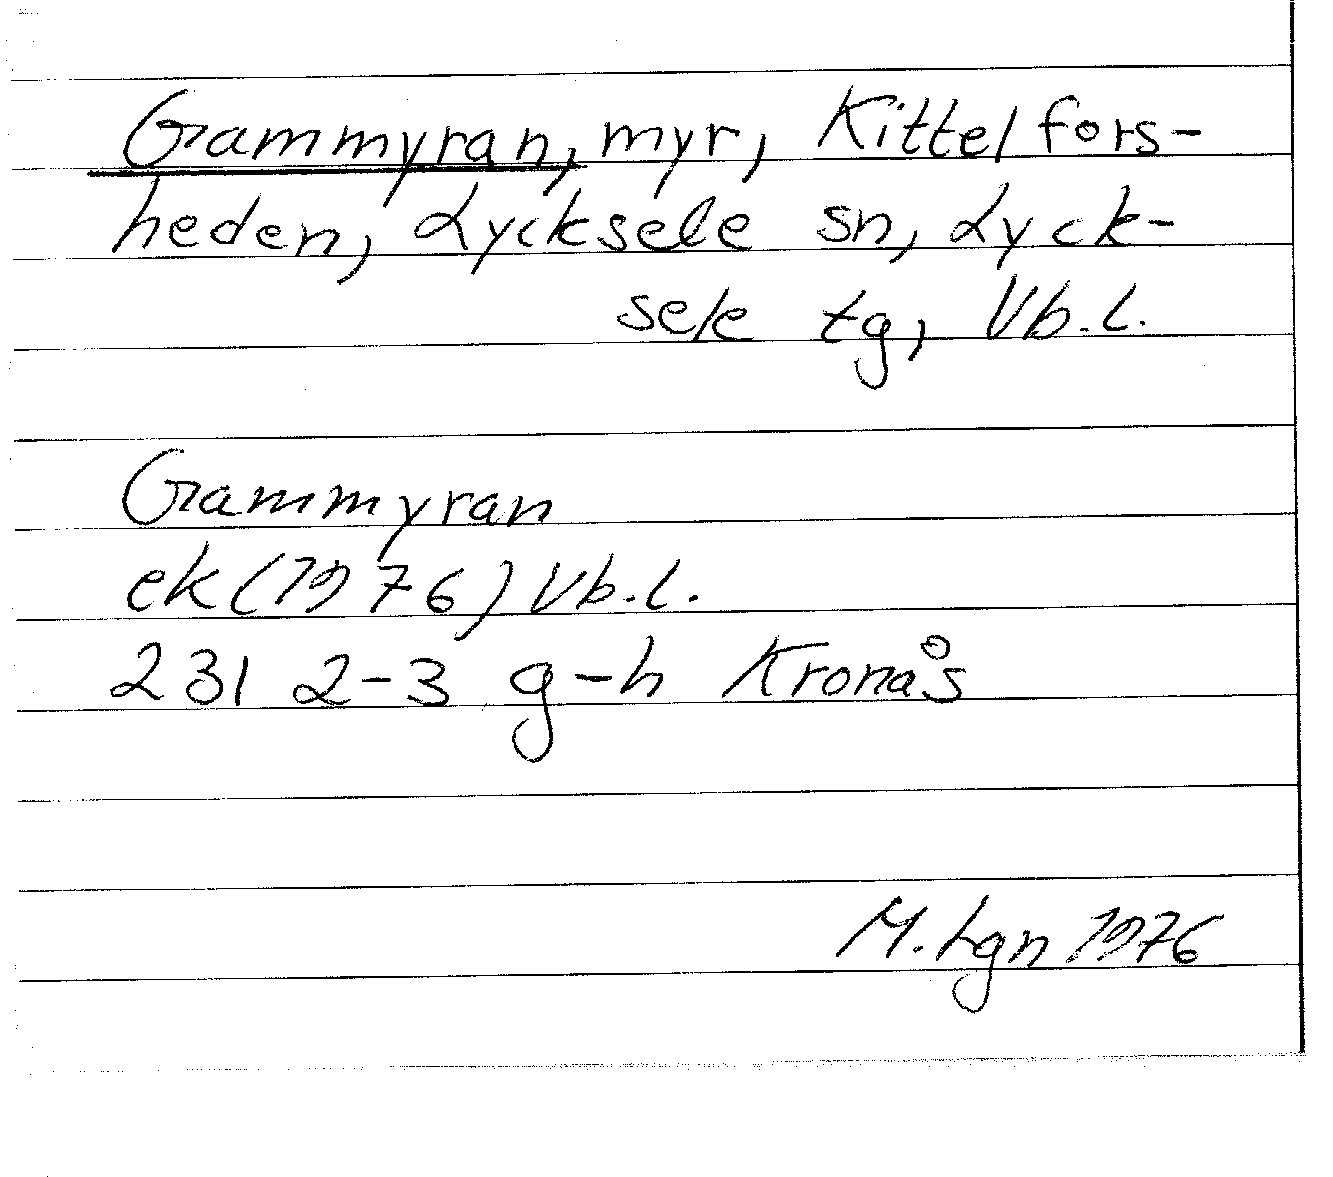 Grammyran, myr, Kittelfors-
heden, Lycksele sn, Lyck-
sele tg, Vb.l.
Grammyran
ek (1976) Vb.l.
231 2-3 g-h Kronås
M. Lgn 1976